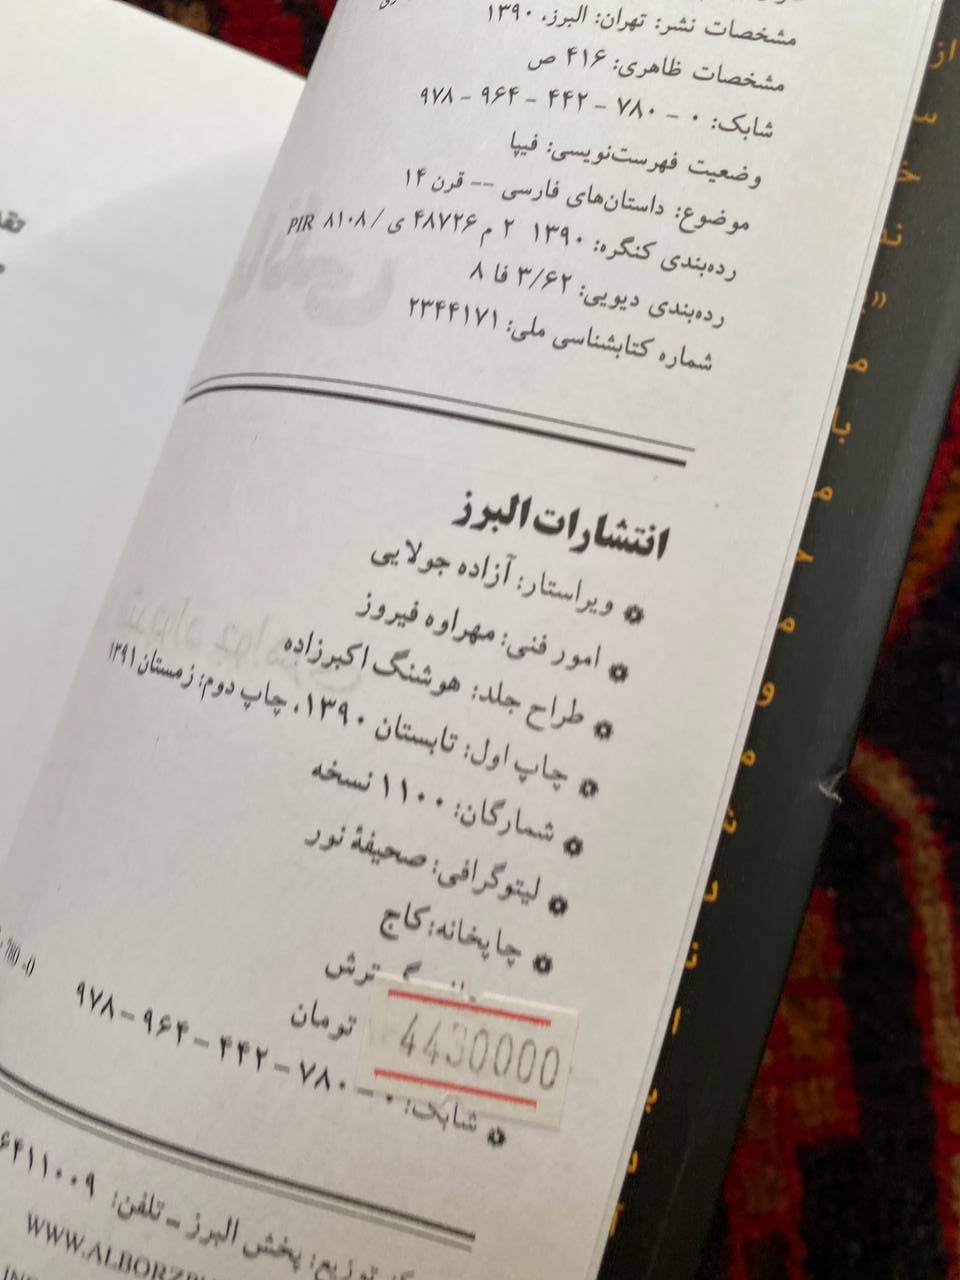 مشخصات نشر: تهران: البرز، ۱۳۹۰
مشخصات ظاهری: ۴۱۶ ص
شابک: ۰ – ۷۸۰ – ۴۴۲ – ۹۶۴ – ۹۷۸
وضعیت فهرست‌نویسی: فیپا
موضوع: داستان‌های فارسی -- قرن ۱۴
رده‌بندی کنگره: ۱۳۹۰ ۲ م ۴۸۷۲۶ ی / PIR ۸۱۰۸
رده‌بندی دیویی: ۳/۶۲ فا ۸
شماره کتابشناسی ملی: ۲۳۴۴۱۷۱
انتشارات البرز
ویراستار: آزاده جولایی
امور فنی: مهراوه فیروز
طراح جلد: هوشنگ اکبرزاده
چاپ اول: تابستان ۱۳۹۰، چاپ دوم: زمستان ۱۳۹۱
شمارگان: ۱۱۰۰ نسخه
لیتوگرافی: صحیفهٔ نور
چاپخانه: کاج
4430000 تومان
شابک: ۰ – ۷۸۰ – ۴۴۲ – ۹۶۴ – ۹۷۸
780 -0
توزیع: پخش البرز – تلفن: ۶۴۱۱۰۰۹